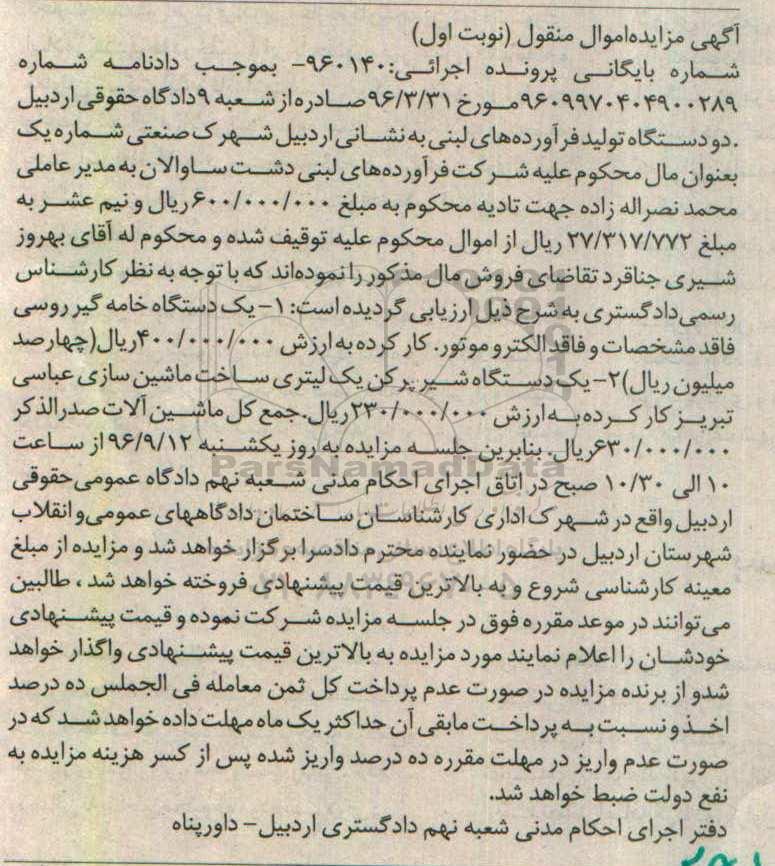 آگهی مزایده‌اموال منقول (نوبت اول)
شماره بایگانی پرونده اجرائی:۹۶۰۱۴۰- بموجب دادنامه شماره
۹۶۰۹۹۷۰۴۰۴۹۰۰۲۸۹مورخ ۹۶/۳/۳۱صادره از شعبه ۹دادگاه حقوقی اردبیل
.دو دستگاه تولید فرآورده‌های لبنی به نشانی اردبیل شهرک صنعتی شماره یک
بعنوان مال محکوم علیه شرکت فرآورده‌های لبنی دشت ساوالان به مدیر عاملی
محمد نصراله زاده جهت تادیه محکوم به مبلغ ۶۰۰/۰۰۰/۰۰۰ریال و نیم عشر به
مبلغ ۲۷/۳۱۷/۷۷۲ ریال از اموال محکوم علیه توقیف شده و محکوم له آقای بهروز
شیری جناقرد تقاضای فروش مال مذکور را نموده‌اند که با توجه به نظر کارشناس
رسمی‌دادگستری به شرح ذیل ارزیابی گردیده است: ۱- یک دستگاه خامه گیر روسی
فاقد مشخصات و فاقد الکترو موتور. کار کرده به ارزش ۴۰۰/۰۰۰/۰۰۰ریال(چهارصد
میلیون ریال)۲- یک دستگاه شیر پرکن یک لیتری ساخت ماشین سازی عباسی
تبریز کار کرده به ارزش ۲۳۰/۰۰۰/۰۰۰ریال.جمع کل ماشین آلات صدرالذکر
۶۳۰/۰۰۰/۰۰۰ریال. بنابرین جلسه مزایده به روز یکشنبه ۹۶/۹/۱۲ از ساعت
۱۰ الی ۱۰/۳۰ صبح در اتاق اجرای احکام مدنی شعبه نهم دادگاه عمومی‌حقوقی
اردبیل واقع در شهرک اداری کارشناسان ساختمان دادگاههای عمومی‌و انقلاب
شهرستان اردبیل در حضور نماینده محترم دادسرا برگزار خواهد شد و مزایده از مبلغ
معینه کارشناسی شروع و به بالاترین قیمت پیشنهادی فروخته خواهد شد ، طالبین
می‌توانند در موعد مقرره فوق در جلسه مزایده شرکت نموده و قیمت پیشنهادی
خودشان را اعلام نمایند مورد مزایده به بالاترین قیمت پیشنهادی واگذار خواهد
شدو از برنده مزایده در صورت عدم پرداخت کل ثمن معامله فی الجملس ده درصد
اخذ و نسبت به پرداخت مابقی آن حداکثر یک ماه مهلت داده خواهد شد که در
صورت عدم واریز در مهلت مقرره ده درصد واریز شده پس از کسر هزینه مزایده به
نفع دولت ضبط خواهد شد.
دفتر اجرای احکام مدنی شعبه نهم دادگستری اردبیل- داورپناه
ParsNamadData